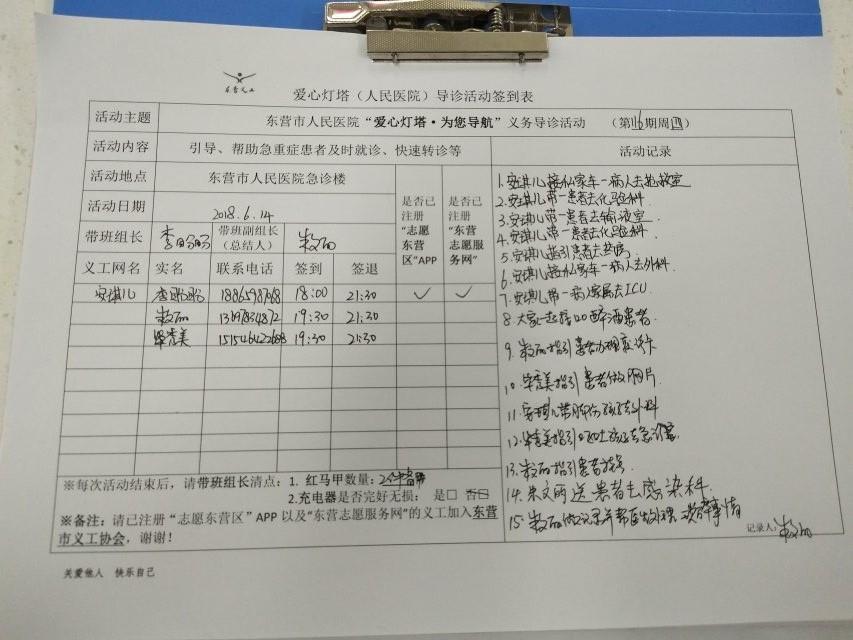 东营义工
爱心灯塔（人民医院）导诊活动签到表
活动主题 东营市人民医院“爱心灯塔·为您导航”义务导诊活动 （第116期周四）
活动内容 引导、帮助急重症患者及时就诊、快速转诊等 活动记录
活动地点 东营市人民医院急诊楼
活动日期 2018.6.14
带班组长 带班副组长（总结人）
是否已注册“志愿东营区”APP
是否已注册“东营志愿服务网”
义工网名 实名 联系电话 签到 签退
安琪儿 18:00 21:30 ✓ ✓
19:30 21:30
毕秀美 19:30 21:30
1.安琪儿接私家车一病人去抢救室
2.安琪儿带一患者去化验科.
3.安琪儿带一患者去输液室.
4.安琪儿带一患者去化验科.
5.安琪儿指引患者去药房
6.安琪儿接私家车一病人去外科.
7.安琪儿带一病人家属去ICU
8.大家一起接120醉酒患者.
9.指引患者办理
10.毕秀美指引患者做CT片
11.安琪儿带
12.毕秀美指引
13.指引患者
14.送患者去感染科.
15.做记录并帮医生
※每次活动结束后，请带班组长清点： 1. 红马甲数量：
2.充电器是否完好无损： 是□ 否□
※备注：请已注册“志愿东营区”APP 以及“东营志愿服务网”的义工加入东营
市义工协会，谢谢！
记录人：
关爱他人 快乐自己